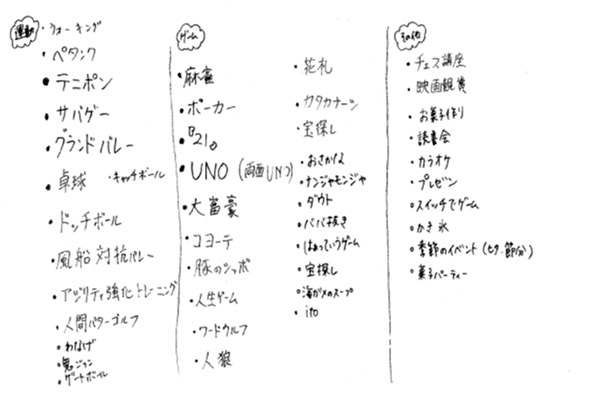 運動
・ウォーキング
・ペタンク
・テニポン
・サバゲー
・グランドバレー
・卓球 ・キャッチボール
・ドッチボール
・風船対抗バレー
・アジリティ強化トレーニング
・人間パターゴルフ
・わなげ
・鬼ごっこ
・ゲートボール
ゲーム
・麻雀
・ポーカー
・『21』
・UNO (両面UNO)
・大富豪
・コヨーテ
・豚のシッポ
・人生ゲーム
・ワードウルフ
・人狼
・花札
・カタカナーシ
・宝探し
・おさかな
・ナンジャモンジャ
・ダウト
・ババ抜き
・はぁっていうゲーム
・宝探し
・海がメのスープ
・ito
その他
・チェス講座
・映画観賞
・お菓子作り
・読書会
・カラオケ
・プレゼン
・スイッチでゲーム
・かき氷
・季節のイベント (七夕、節分)
・菓子パーティー